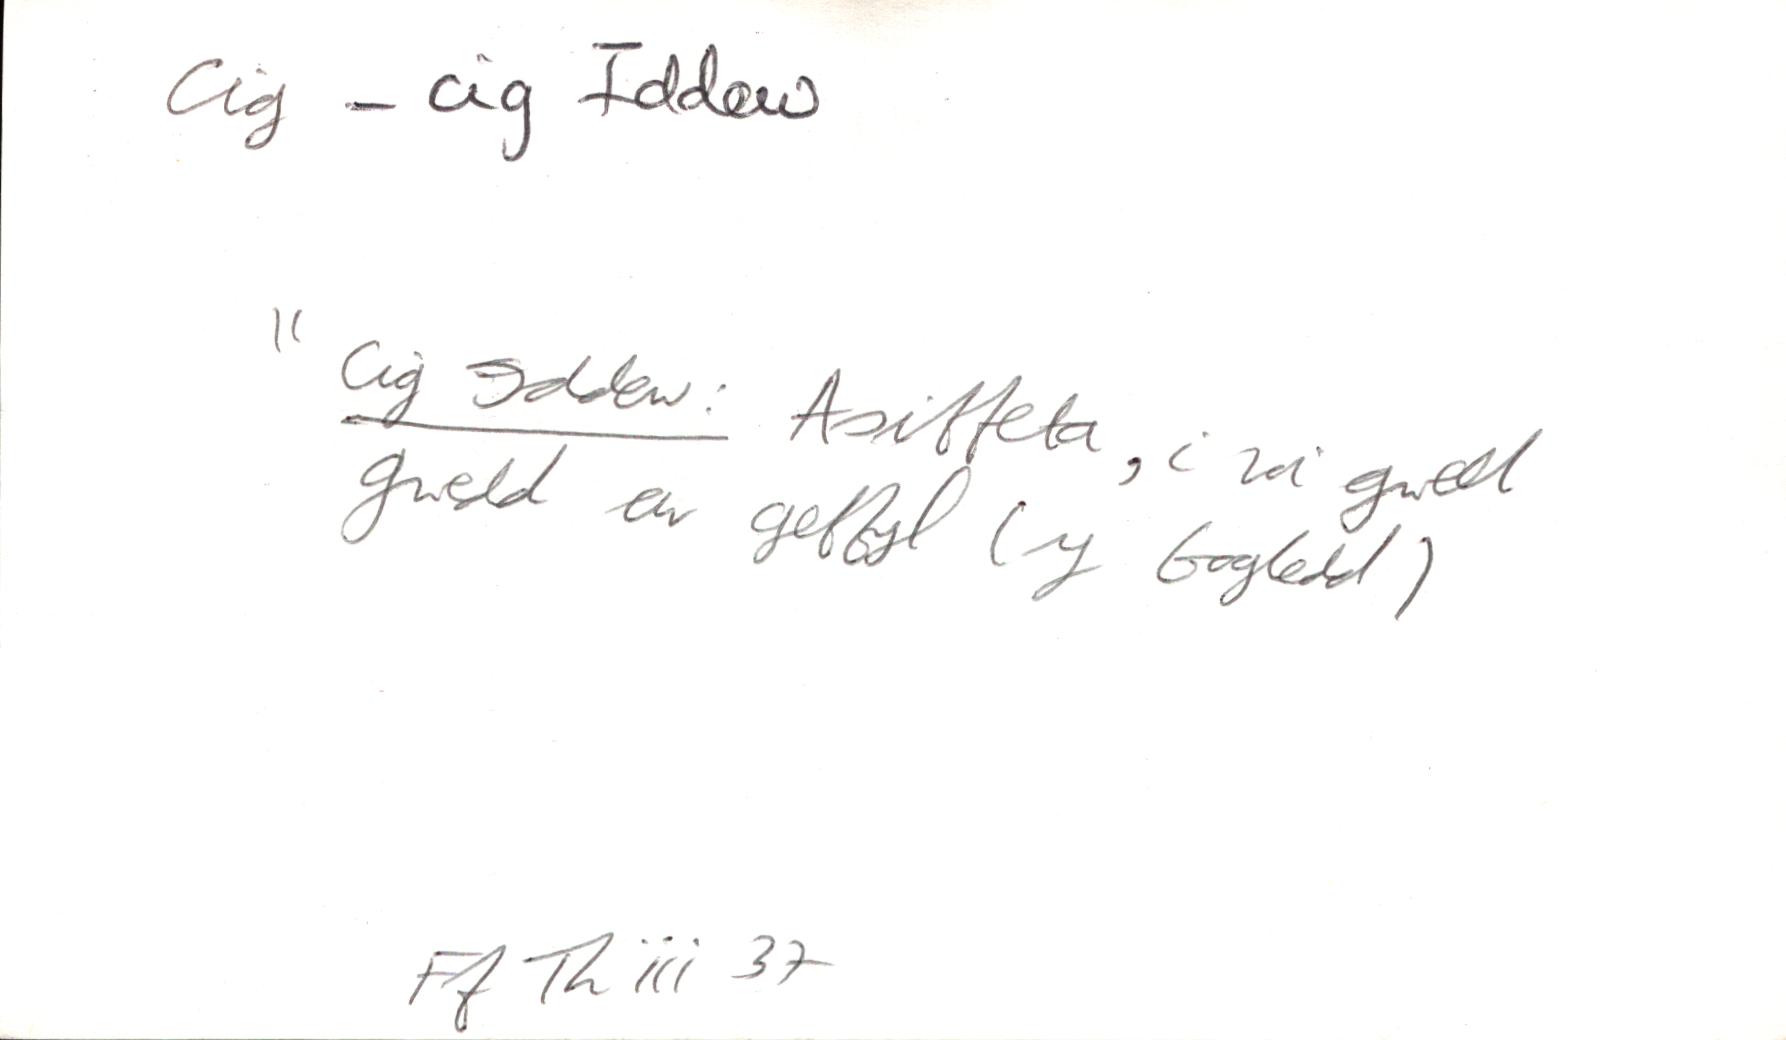 Cig - cig Iddew
" Cig Iddew: Asiffeta, i roi gwell
gwedd ar geffyl (y Gogledd)
Ff Th iii 37